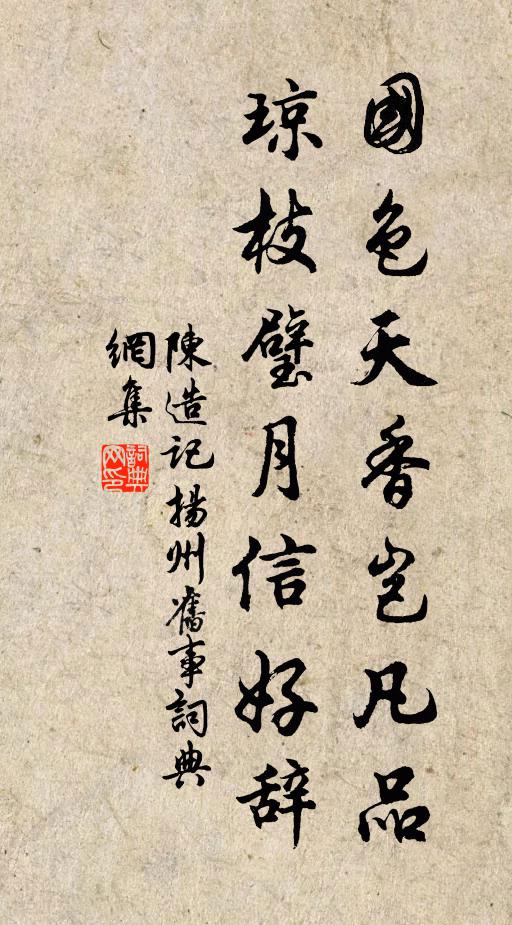 國色天香岂凡品
琼枝璧月信好辞
陳造记揚州舊事詞典
網集
詞典
网印